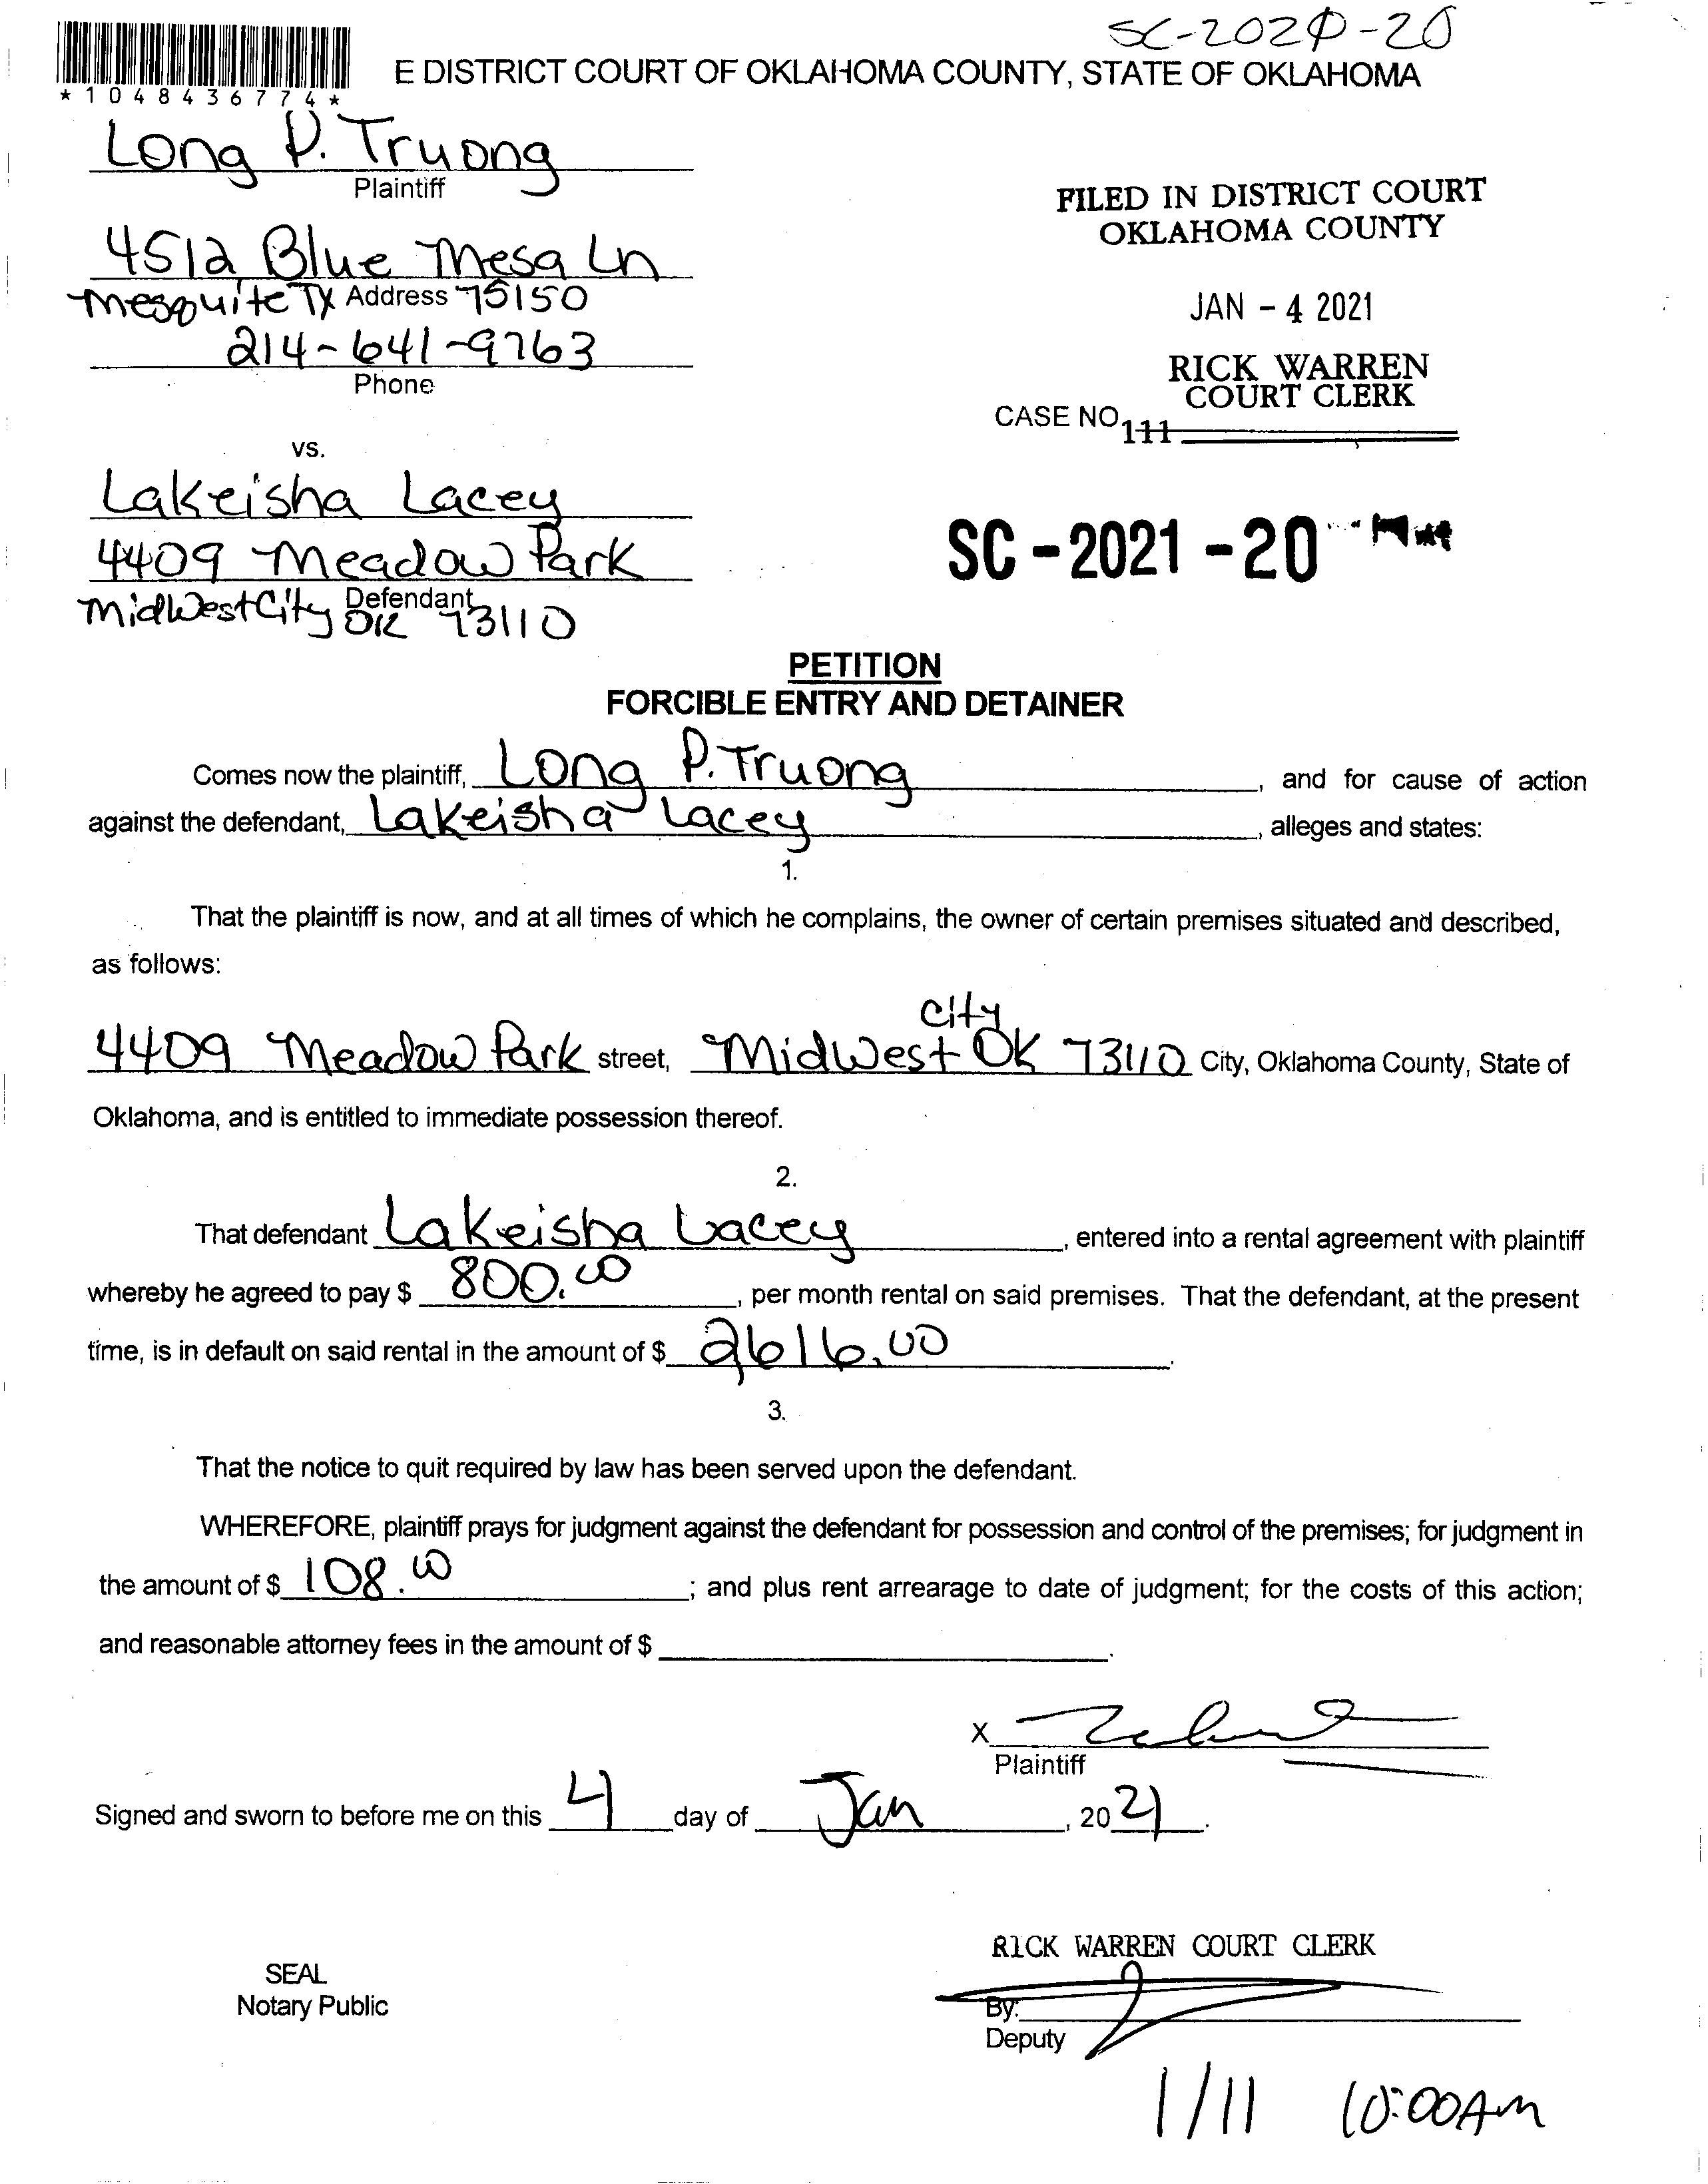 SC-2020-20
*1048436774*
E DISTRICT COURT OF OKLAHOMA COUNTY, STATE OF OKLAHOMA
Long P. Truong
Plaintiff
4512 Blue Mesa Ln
Mesquite TX Address 75150
214-641-9763
Phone
FILED IN DISTRICT COURT
OKLAHOMA COUNTY
JAN - 4 2021
RICK WARREN
COURT CLERK
CASE NO. 111
vs.
Lakeisha Lacey
4409 Meadow Park
Defendant
MidWest City OK 73110
SC - 2021 - 20
PETITION
FORCIBLE ENTRY AND DETAINER
Comes now the plaintiff, Long P. Truong, and for cause of action
against the defendant, Lakeisha Lacey, alleges and states:
1.
That the plaintiff is now, and at all times of which he complains, the owner of certain premises situated and described,
as follows:
city
4409 Meadow Park street, MidWest OK 73110 City, Oklahoma County, State of
Oklahoma, and is entitled to immediate possession thereof.
2.
That defendant Lakeisha Lacey, entered into a rental agreement with plaintiff
whereby he agreed to pay $ 800.00, per month rental on said premises. That the defendant, at the present
time, is in default on said rental in the amount of $ 2616.00.
3.
That the notice to quit required by law has been served upon the defendant.
WHEREFORE, plaintiff prays for judgment against the defendant for possession and control of the premises; for judgment in
the amount of $ 108.00; and plus rent arrearage to date of judgment; for the costs of this action;
and reasonable attorney fees in the amount of $ .
X
Plaintiff
Signed and sworn to before me on this 4 day of Jan, 2021.
RICK WARREN COURT CLERK
SEAL
Notary Public
By:
Deputy
1/11 10:00AM